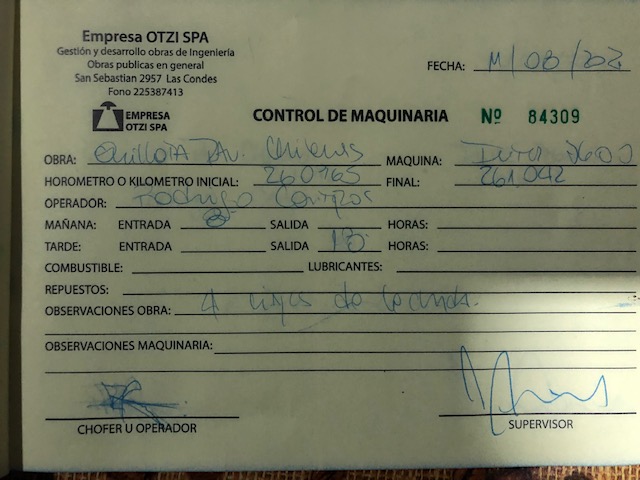 Empresa OTZI SPA
Gestión y desarrollo obras de Ingeniería
Obras publicas en general
San Sebastian 2957 Las Condes
Fono 225387413
EMPRESA
OTZI SPA
FECHA: 11/08/202
CONTROL DE MAQUINARIA Nº 84309
OBRA: Quillota Av. Chilenis MAQUINA:
HOROMETRO O KILOMETRO INICIAL: 260965 FINAL: 261042
OPERADOR: Rodrigo Campos
MAÑANA: ENTRADA 8 SALIDA HORAS:
TARDE: ENTRADA SALIDA 18 HORAS:
COMBUSTIBLE: LUBRICANTES:
REPUESTOS:
OBSERVACIONES OBRA: 4 viajes de
OBSERVACIONES MAQUINARIA:
CHOFER U OPERADOR
SUPERVISOR